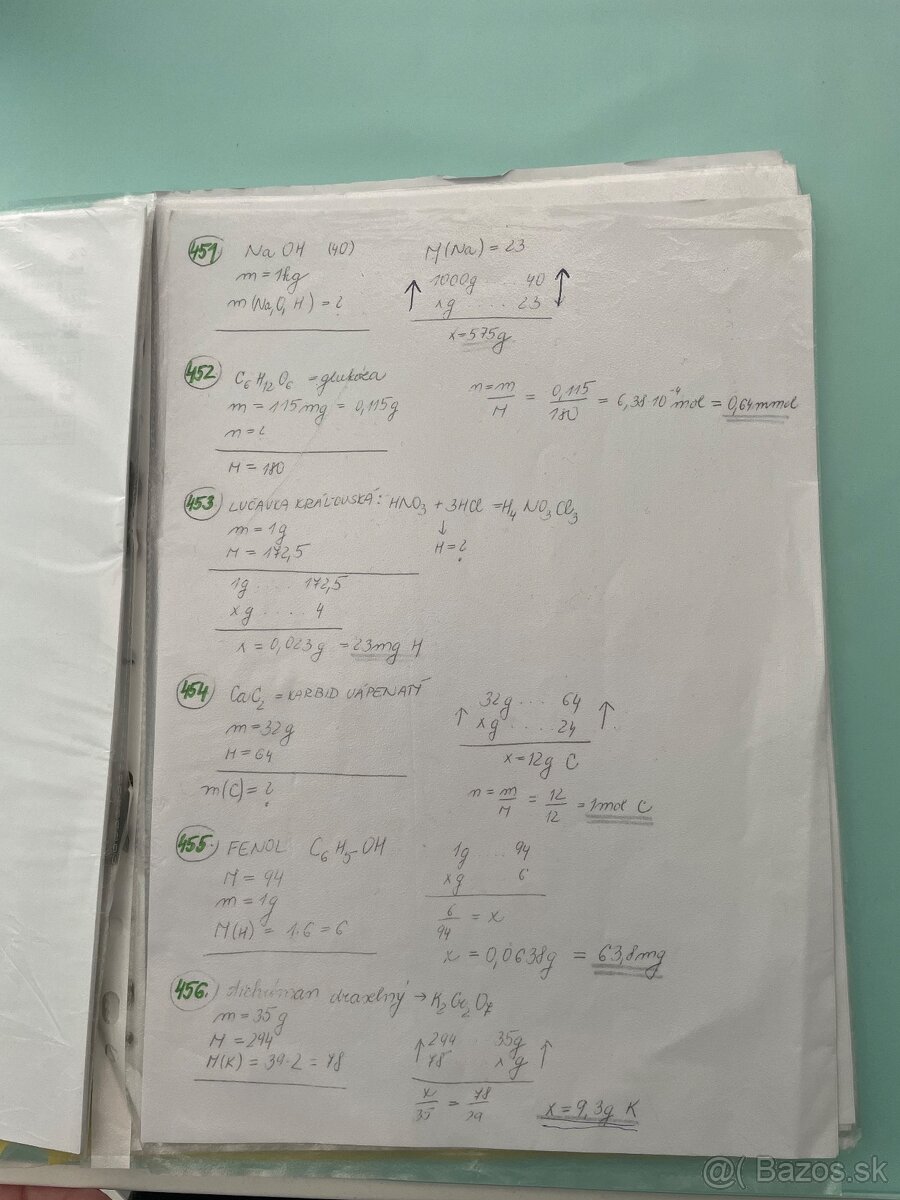 451 NaOH (40) M(Na) = 23
m = 1kg 1000g .... 40
m(Na,O,H) = ? xg .... 23
x = 575g
452 C6H12O6 = glukóza
m = 115mg = 0,115g n = m/M = 0,115/180 = 6,38·10⁻⁴ mol = 0,64 mmol
n = ?
M = 180
453 LUČAVKA KRÁĽOVSKÁ: HNO3 + 3HCl = H4NO3Cl3
m = 1g ↓
M = 172,5 H = ?
1g .... 172,5
xg .... 4
x = 0,023g = 23mg H
454 CaC2 = KARBID VÁPENATÝ 32g .... 64
m = 32g ↑ xg .... 24 ↑
M = 64 x = 12g C
m(C) = ? n = m/M = 12/12 = 1mol C
455. FENOL C6H5-OH 1g .. 94
M = 94 xg 6
m = 1g 6/94 = x
M(H) = 1·6 = 6 x = 0,0638g = 63,8mg
456. dichróman draselný → K2Cr2O7
m = 35g
M = 294 ↑ 294 . 35g ↑
M(K) = 39·2 = 78 78 xg
x/35 = 78/29 x = 9,3g K
@( Bazos.sk